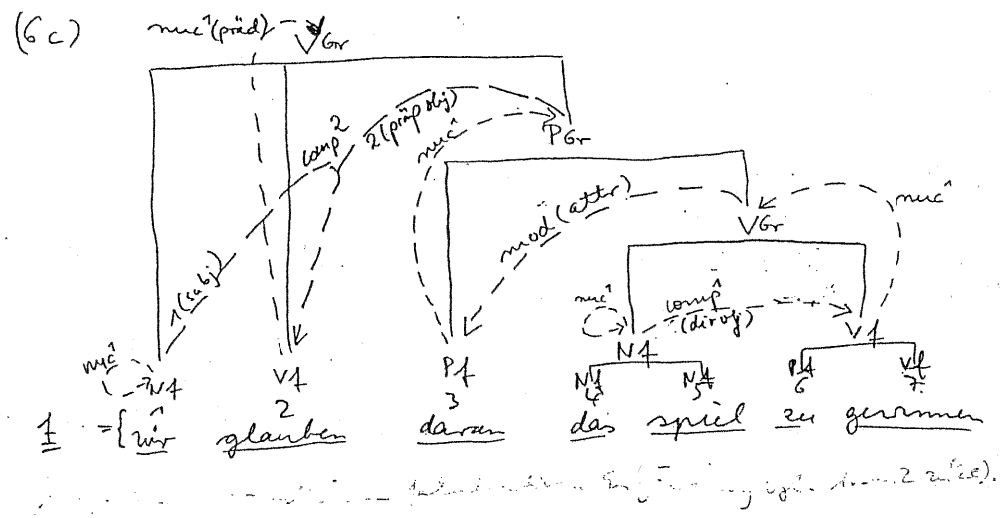 (6c) nuc^(präd) VGr
comp^2 2(präpobj) nuc^ PGr
mod^(attr) VGr nuc^
1(subj) nuc^ comp^ (dirobj)
nuc^ Nf Vf Pf Nf Vf
Nf Nf Pf Vf
1 2 3 4 5 6 7
f = { wir glauben daran das spiel zu gewinnen